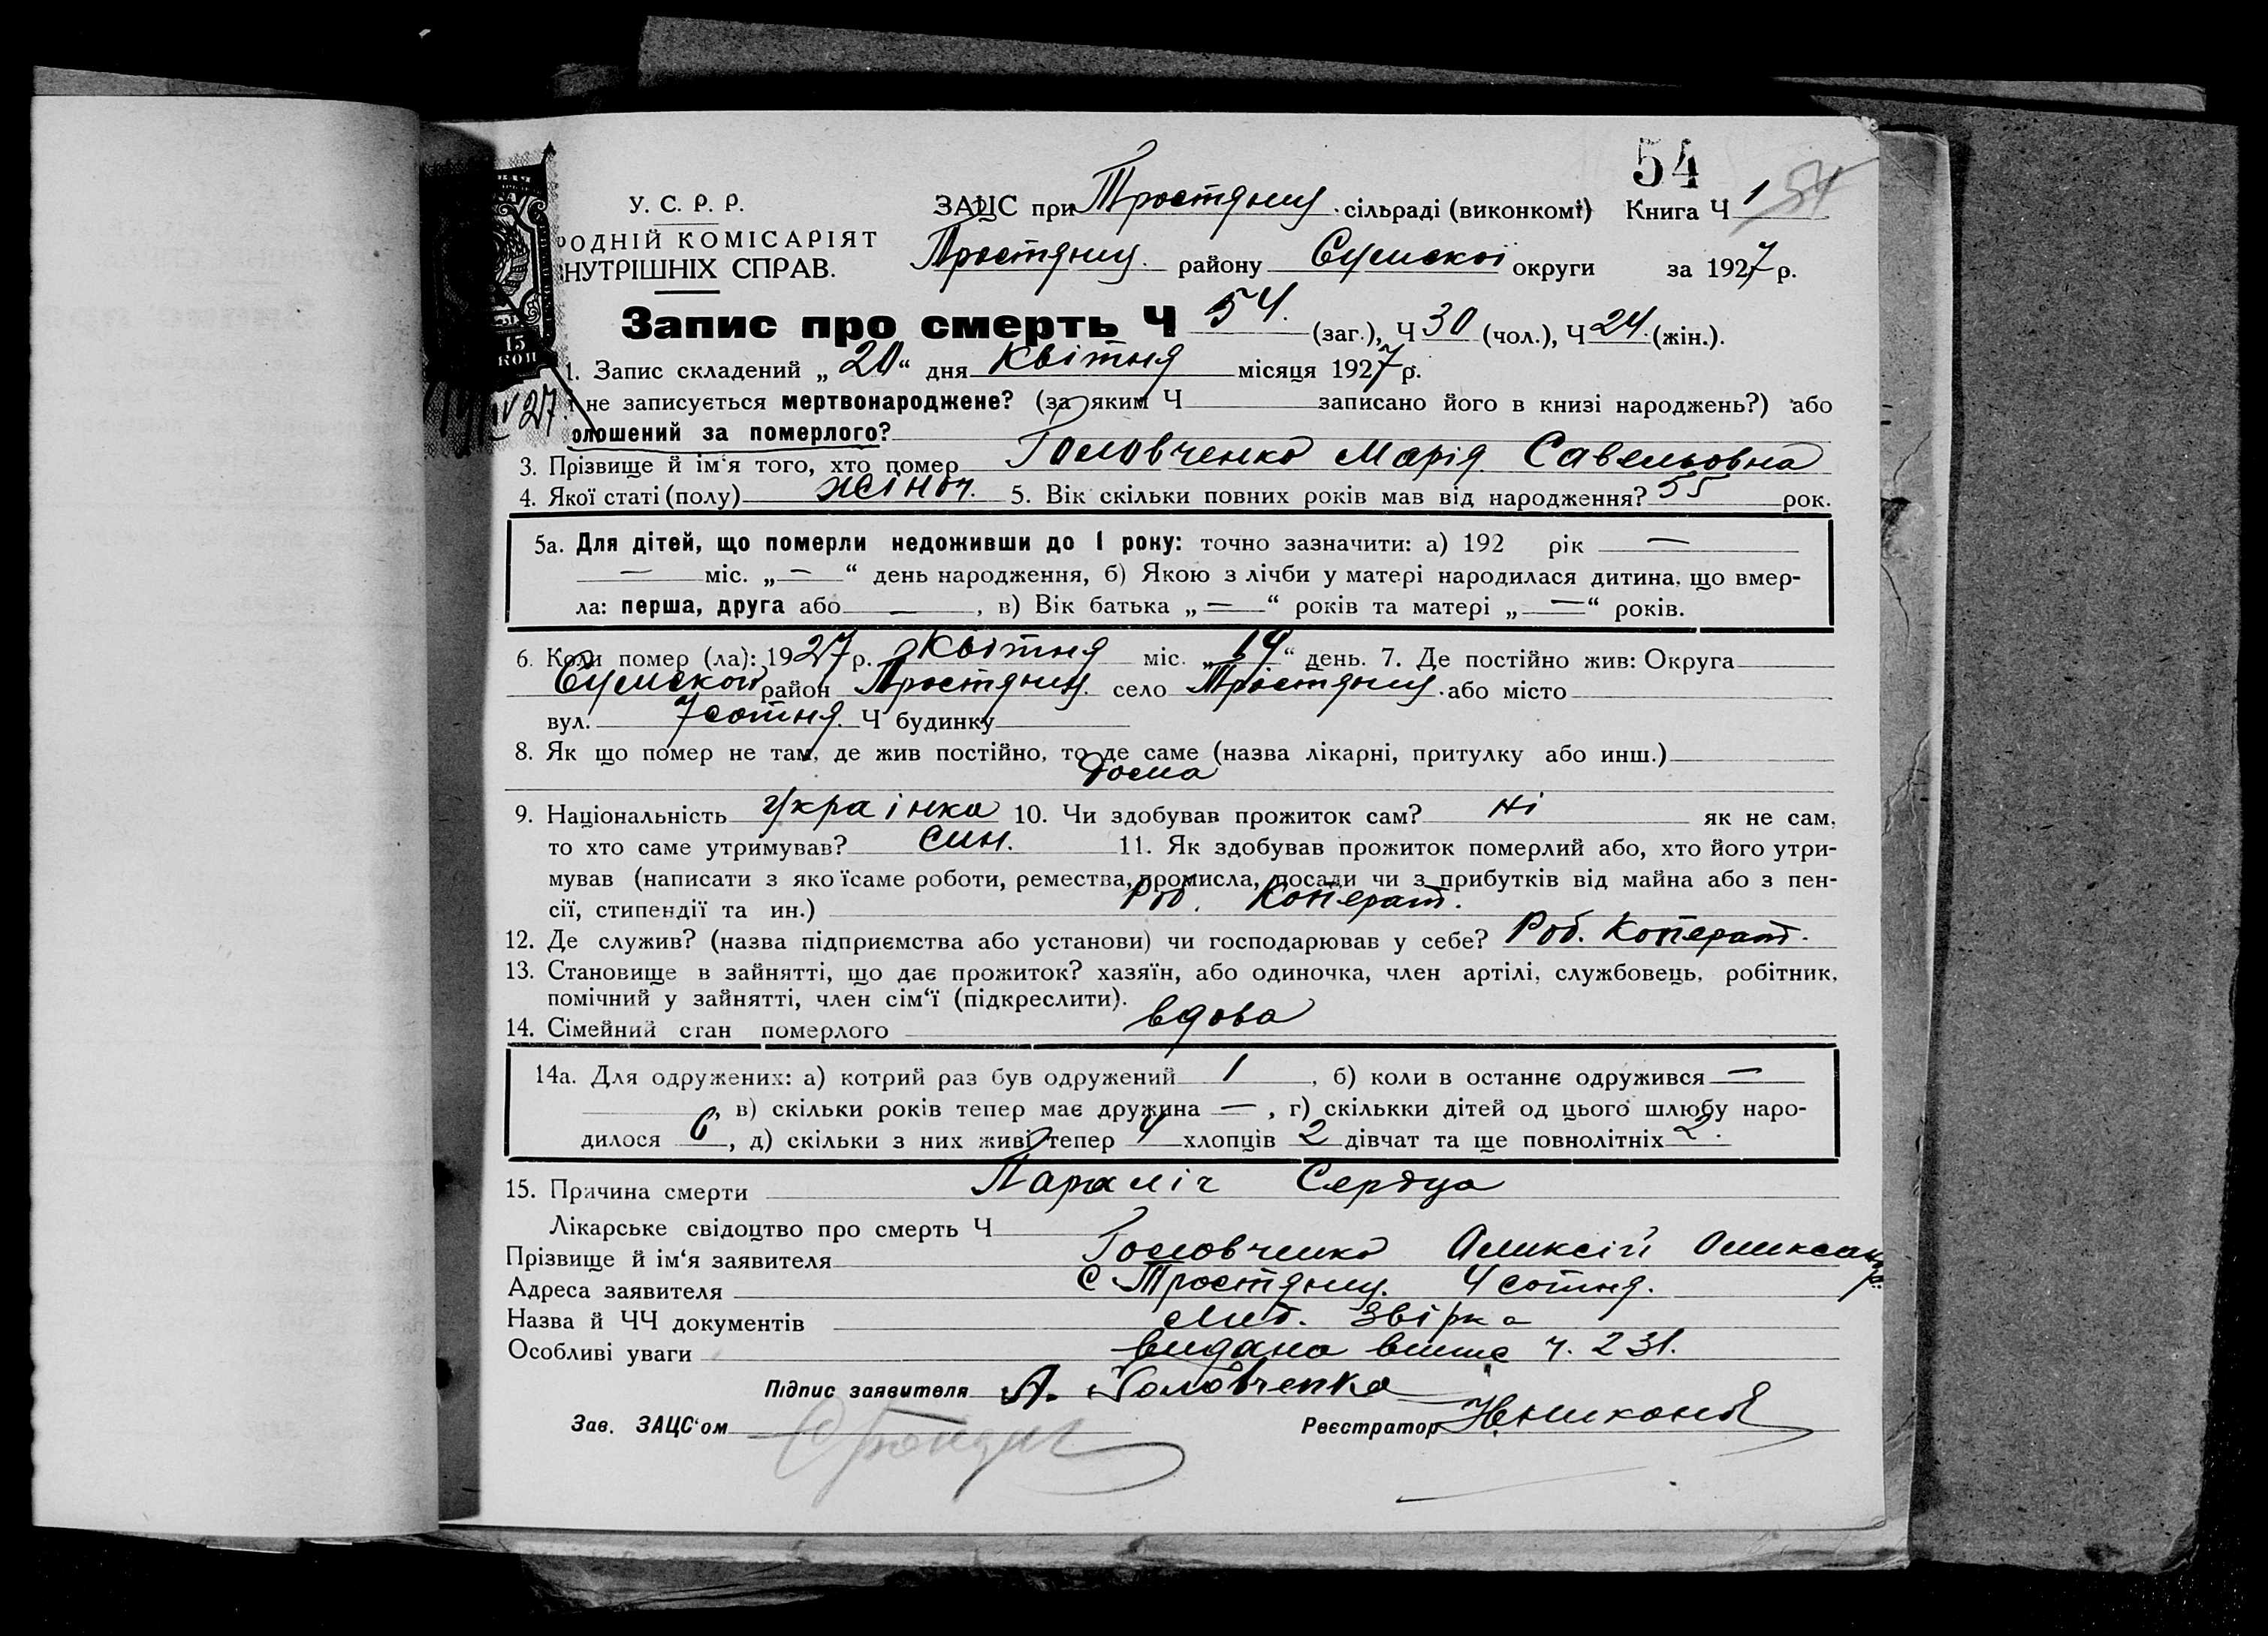 54
У. С. Р. Р.
ЗАЦС при Тростянец. сільраді (виконкомі) Книга Ч 1 54
РОДНІЙ КОМІСАРІЯТ
НУТРІШНІХ СПРАВ.
Тростянец. району Сумской округи за 1927 р.
Запис про смерть Ч 54. (заг.), Ч 30 (чол.), Ч 24. (жін.).
15
КОП
1. Запис складений „ 20 “ дня Квітня місяця 1927 р.
не записується мертвонароджене? (за яким Ч записано його в книзі народжень?) або
IV 27
олошений за померлого?
3. Прізвище й ім‘я того, хто помер Головченко Марія Савельовна
4. Якої статі (полу) жіноч. 5. Вік скільки повних років мав від народження? 55 рок.
5а. Для дітей, що померли недоживши до 1 року: точно зазначити: а) 192 рік —
— міс. „ — “ день народження, б) Якою з лічби у матері народилася дитина, що вмер-
ла: перша, друга або —, в) Вік батька „ — “ років та матері „ — “ років.
6. Коли помер (ла): 1927 р. Квітня міс. „ 19 “ день. 7. Де постійно жив: Округа
Сумской район Тростянец. село Тростянец. або місто
вул. 7 сотня. Ч будинку
8. Як що помер не там, де жив постійно, то де саме (назва лікарні, притулку або инш.)
дома
9. Національність Українка 10. Чи здобував прожиток сам? Ні як не сам,
то хто саме утримував? син. 11. Як здобував прожиток померлий або, хто його утри-
мував (написати з якоїсаме роботи, ремества, промисла, посади чи з прибутків від майна або з пен-
сії, стипендії та ин.) Роб. Коперат.
12. Де служив? (назва підприємства або установи) чи господарював у себе? Роб. Коперат.
13. Становище в зайнятті, що дає прожиток? хазяїн, або одиночка, член артілі, службовець, робітник,
помічний у зайнятті, член сім‘ї (підкреслити).
14. Сімейний стан померлого вдова
14а. Для одружених: а) котрий раз був одружений 1, б) коли в останнє одружився —
, в) скільки років тепер має дружина —, г) скількки дітей од цього шлюбу наро-
дилося 6, д) скільки з них живі тепер 4 хлопців 2 дівчат та ще повнолітніх 2.
15. Причина смерти Параліч Сердца
Лікарське свідоцтво про смерть Ч
Прізвище й ім‘я заявителя Головченко Аликсій Оликсандр.
Адреса заявителя с Тростянец. 4 сотня.
Назва й ЧЧ документів звірка
Особливі уваги видано ч. 231.
Підпис заявителя А. Головченко
Зав. ЗАЦС‘ом
Реєстратор